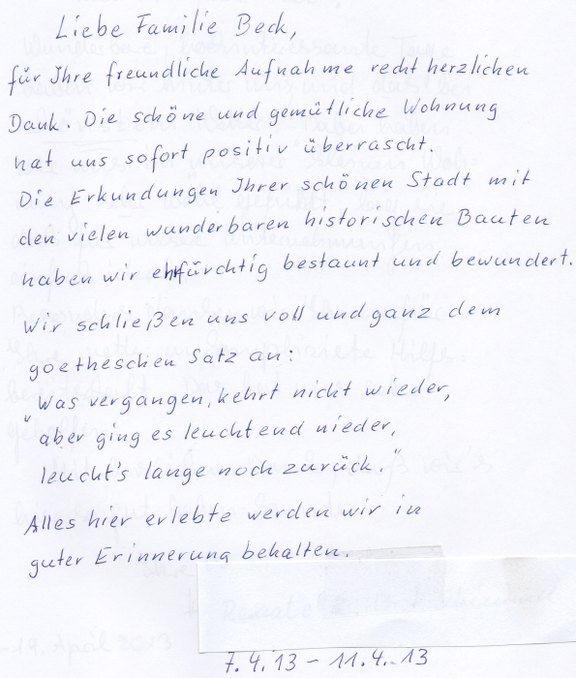 Liebe Familie Beck,
für Ihre freundliche Aufnahme recht herzlichen
Dank. Die schöne und gemütliche Wohnung
hat uns sofort positiv überrascht.
Die Erkundungen Ihrer schönen Stadt mit
den vielen wunderbaren historischen Bauten
haben wir ehrfürchtig bestaunt und bewundert.
Wir schließen uns voll und ganz dem
goetheschen Satz an:
„Was vergangen, kehrt nicht wieder,
aber ging es leuchtend nieder,
leucht's lange noch zurück."
Alles hier erlebte werden wir in
guter Erinnerung behalten.
7.4.'13 - 11.4..13